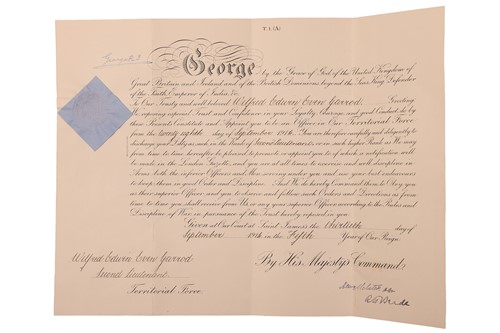 T. 1 (A)
George by the Grace of God, of the United Kingdom of
Great Britain and Ireland and of the British Dominions beyond the Seas King, Defender
of the Faith, Emperor of India, &c.
To Our Trusty and well beloved Wilfred Edwin Greeting
We reposing especial Trust and Confidence in your Loyalty, Courage and good Conduct, do by
Presents Constitute and Appoint you to be an Officer in Our Territorial Force
from the twenty eighth day of September 1914. You are therefore carefully and diligently to
discharge your Duty as such in the Rank of Second Lieutenant or in such higher Rank as We may
from time to time hereafter be pleased to promote or appoint you to of which a notification will
be made in the London Gazette, and you are at all times to exercise and well discipline in
Arms both the inferior Officers and Men serving under you and use your best endeavours
to keep them in good Order and Discipline. And We do hereby Command them to Obey you
as their superior Officer, and you to observe and follow such Orders and Directions as from
time to time you shall receive from Us, or any your superior Officer, according to the Rules and
Discipline of War, in pursuance of the Trust hereby reposed in you.
Given at Our Court at Saint James's the thirtieth day of
September 1914 in the Fifth Year of Our Reign.
By His Majesty's Command.
Wilfred Edwin
Second Lieutenant
Territorial Force.